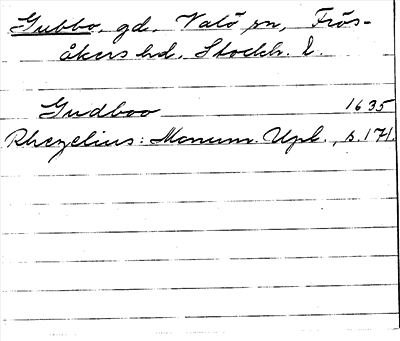 Gubbo, gd, Valö sn, Frös-
åkers hd, Stockh. l.
Gudboo 1635
Rhezelius: Monum. Upl., s. 171.